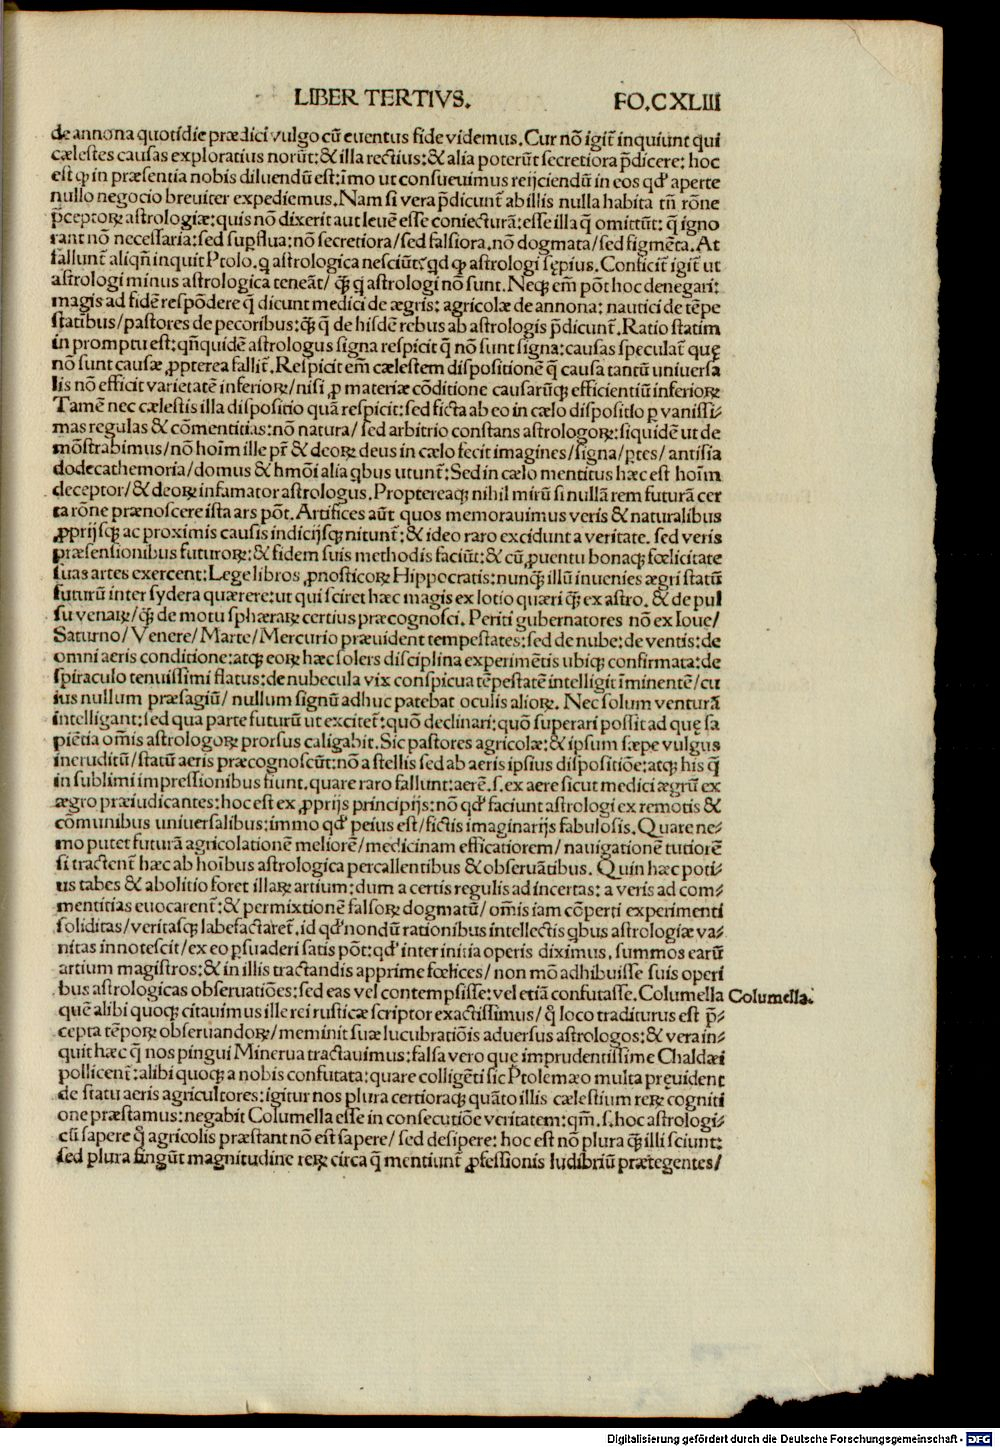 LIBER TERTIVS. FO.CXLIII
de annona quotidie prædici vulgo cū euentus fide videmus. Cur nō igit̃ inquiunt qui
cælestes causas exploratius norūt:& illa rectius:& alia poterūt secretiora p̄dicere: hoc
est ꝙ in præsentia nobis diluendū est:īmo ut consueuimus reijciendū in eos qđ aperte
nullo negocio breuiter expediemus. Nam si vera p̄dicunt̃ ab illis nulla habita tñ rōne
p̄ceptoꝝ astrologiæ: quis nō dixerit aut leuē esse coniecturā: esse illa q̄ omittūt: q̄ igno
rant nō necessaria: sed supflua: nō secretiora/sed falsiora. nō dogmata/sed figmēta. At
fallunt̃ aliqñ inquit Ptolo. ꝗ astrologica nesciūt: qđ ꝙ astrologi sępius. Conficit̃ igit̃ ut
astrologi minus astrologica teneāt/ ꝙ̃ ꝗ astrologi nō sunt. Neqꝫ em̄ pōt hoc denegari:
magis ad fidē respōdere q̄ dicunt medici de ægris: agricolæ de annona: nautici de tēpe
statibus/pastores de pecoribus: ꝙ̃ q̄ de hisdē rebus ab astrologis p̄dicunt̃. Ratio statim
in promptu est: qñquidē astrologus signa respicit q̄ nō sunt signa: causas speculat̃ quę
nō sunt causæ ꝓpterea fallit̃. Respicit em̄ cælestem dispositionē q̄ causa tantū uniuersa
lis nō efficit varietatē inferioꝝ/nisi ꝓ materiæ cōditione causarūqꝫ efficientiū inferioꝝ
Tamē nec cælestis illa dispositio quā respicit: sed ficta ab eo in cælo dispositio ꝑ vanissi⸗
mas regulas & cōmentitias: nō natura/ sed arbitrio constans astrologoꝝ: siquidē ut de
mōstrabimus/nō hoīm ille pr̄ & deoꝝ deus in cælo fecit imagines/signa/ꝑtes/ antisia
dodecathemoria/domus & hmōi alia ꝗbus utunt̃: Sed in cælo mentitus hæc est hoīm
deceptor/& deoꝝ infamator astrologus. Proptereaqꝫ nihil mirū si nullā rem futurā cer
ta rōne prænoscere ista ars pōt. Artifices aūt quos memorauimus veris & naturalibus
ꝓprijsqꝫ ac proximis causis indicijsqꝫ nitunt̃: & ideo raro excidunt a veritate. sed veris
præsensionibus futuroꝝ: & fidem suis methodis faciūt: & cū ꝓuentu bonaqꝫ fœlicitate
suas artes exercent: Lege libros ꝓnosticoꝝ Hippocratis: nunꝙ̃ illū inuenies ægri statū
futurū inter sydera quærere: ut qui sciret hæc magis ex lotio quæri ꝙ̃ ex astro. & de pul
su venaꝝ/ꝙ̃ de motu sphæraꝝ certius præcognosci. Periti gubernatores nō ex Ioue/
Saturno/ Venere/ Marte/ Mercurio præuident tempestates: sed de nube: de ventis: de
omni aeris conditione: atqꝫ eoꝝ hæc solers disciplina experimētis ubiqꝫ confirmata: de
spiraculo tenuissimi flatus: de nubecula vix conspicua tēpestatē intelligit īminentē/cu
ius nullum præsagiū/ nullum signū adhuc patebat oculis alioꝝ. Nec solum venturā
intelligant: sed qua parte futurū ut excitet̃: quō declinari: quō superari possit ad quę sa
piētia om̄is astrologoꝝ prorsus caligabit. Sic pastores agricolæ: & ipsum sæpe vulgus
ineruditū/statū aeris præcognoscūt: nō a stellis sed ab aeris ipsius dispositiōe: atqꝫ his q̄
in sublimi impressionibus fiunt. quare raro fallunt: aerē .s. ex aere sicut medici ægrū ex
ægro præiudicantes: hoc est ex ꝓprijs principijs: nō qđ faciunt astrologi ex remotis &
cōmunibus uniuersalibus: immo qđ peius est/ fictis imaginarijs fabulosis. Quare ne⸗
mo putet futurā agricolationē meliorē/medicinam efficatiorem/ nauigationē tutiorē
si tractent̃ hæc ab hoībus astrologica percallentibus & obseruātibus. Quin hæc poti⸗
us tabes & abolitio foret illaꝝ artium: dum a certis regulis ad incertas: a veris ad com⸗
mentitias euocarent̃: & permixtionē falsoꝝ dogmatū/ om̄is iam cōperti experimenti
soliditas/veritasqꝫ labefactaret̃. id qđ nondū rationibus intellectis ꝗbus astrologiæ va⸗
nitas innotescit/ex eo ꝑsuaderi satis pōt: qđ inter initia operis diximus, summos earū
artium magistros: & in illis tractandis apprime fœlices/ non mō adhibuisse suis operi
bus astrologicas obseruatiōes: sed eas vel contempsisse: vel etiā confutasse. Columella
Columella.
quē alibi quoqꝫ citauimus ille rei rusticæ scriptor exactissimus/ q̄ loco traditurus est p̄⸗
cepta tēpoꝝ obseruandoꝝ/meminit suæ lucubratiōis aduersus astrologos: & vera in⸗
quit hæc q̄ nos pingui Minerua tractauimus: falsa vero que imprudentissime Chaldæi
pollicent̃: alibi quoqꝫ a nobis confutata: quare colligēti sic Ptolemæo multa pręuident
de statu aeris agricultores: igitur nos plura certioraqꝫ quāto illis cælestium reꝝ cogniti
one præstamus: negabit Columella esse in consecutiōe veritatem: qm̄ .s. hoc astrologi⸗
cū sapere q̄ agricolis præstant nō est sapere/ sed desipere: hoc est nō plura ꝙ̃ illi sciunt:
sed plura fingūt magnitudine reꝝ circa q̄ mentiunt̃ ꝓfessionis ludibriū prætegentes/
Digitalisierung gefördert durch die Deutsche Forschungsgemeinschaft - DFG